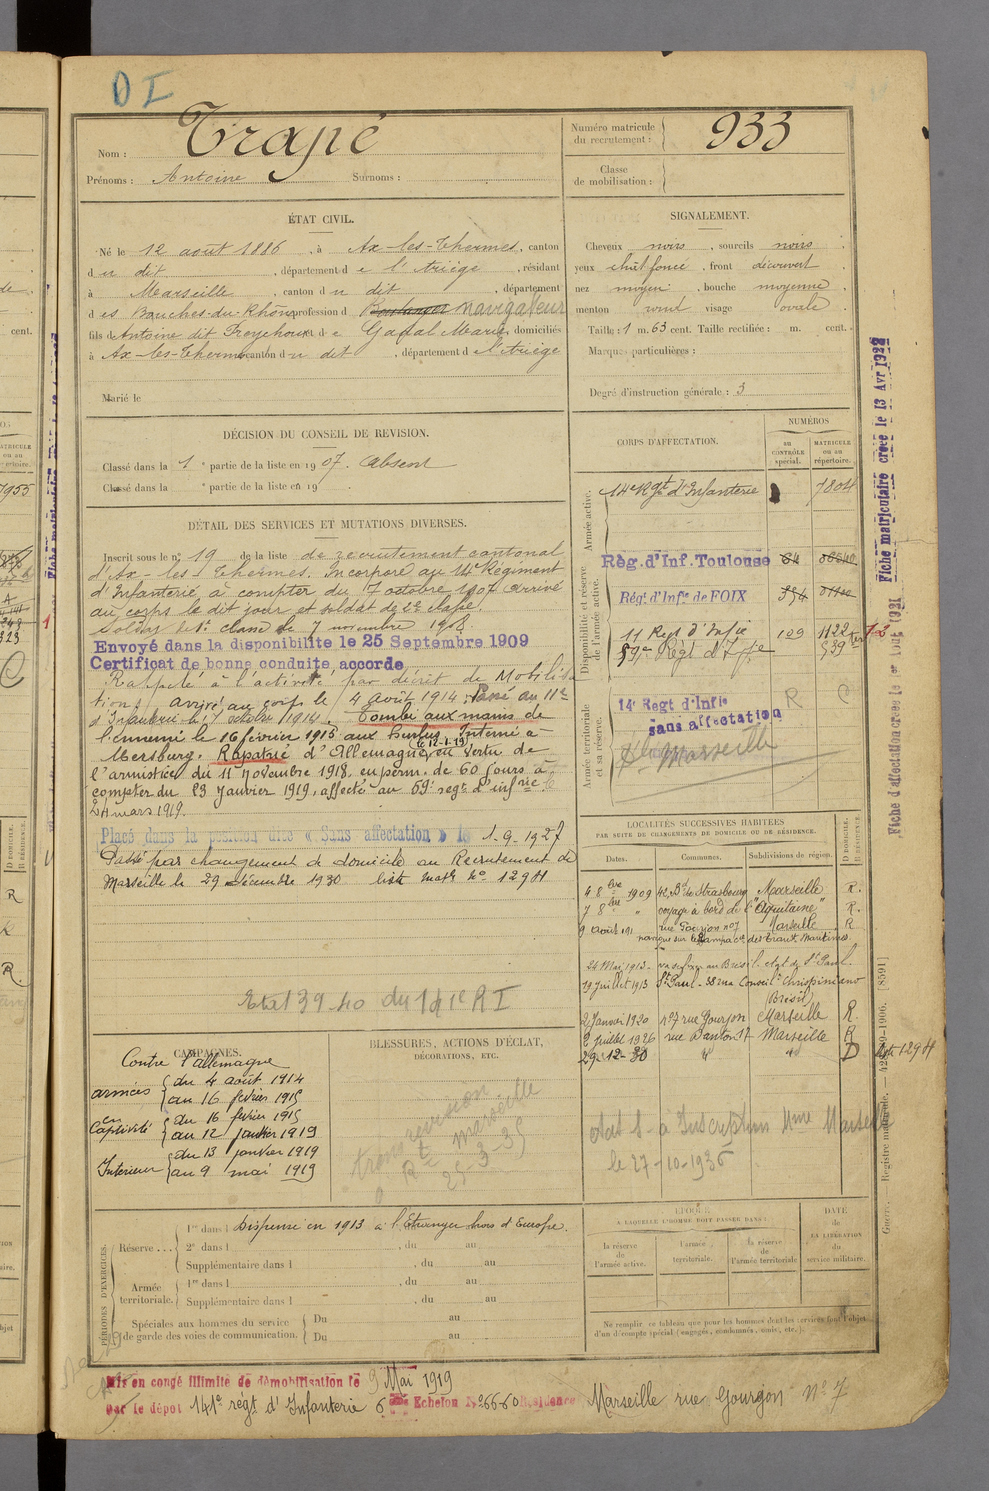 D I
Nom : Trapé
Prénoms : Antoine Surnoms :
Numéro matricule du recrutement : 933
Classe de mobilisation :
ÉTAT CIVIL.
Né le 12 août 1886, à Ax-les-Thermes, canton
d u dit, département d e l'Ariège, résidant
à Marseille, canton d u dit, département
d es Bouches-du-Rhône profession d Boulanger navigateur
fils de Antoine dit Preychoux et d e Gadal Marie, domiciliés
à Ax-les-Thermes canton d u dit, département d e l'Ariège
Marié le
SIGNALEMENT.
Cheveux noirs, sourcils noirs
yeux chât foncé, front découvert
nez moyen, bouche moyenne
menton rond visage ovale
Taille : 1 m. 63 cent. Taille rectifiée : m. cent.
Marques particulières :
Degré d'instruction générale : 3
DÉCISION DU CONSEIL DE REVISION.
Classé dans la 1e partie de la liste en 1907. Absent
Classé dans la e partie de la liste en 19
DÉTAIL DES SERVICES ET MUTATIONS DIVERSES.
Inscrit sous le n° 19 de la liste de recrutement cantonal
d'Ax-les-Thermes. Incorporé au 14e Régiment
d'Infanterie à compter du 7 octobre 1907 Arrivé
au corps le dit jour et soldat de 2e classe.
Soldat de 1e classe le 7 novembre 1908.
Envoyé dans la disponibilité le 25 Septembre 1909
Certificat de bonne conduite accordé
Rappelé à l'activité par décret de Mobilisa
tion, arrivé au corps le 4 août 1914. Passé au 11e
d'Infanterie le 7 octobre 1914. Tombé aux mains de
l'ennemi le 16 février 1915 aux Hurlus Interné à
Mersburg. Rapatrié d'Allemagne le 12-1-19 en vertu de
l'armistice du 11 Novembre 1918, en perm. de 60 jours à
compter du 23 Janvier 1919, affecté au 59e régt d'infrie le
24 mars 1919.
Placé dans la position dite « Sans affectation » le 1-9-1927
Passé par changement de domicile au Recrutement de
Marseille le 29 décembre 1930 liste matle No 1294
Etat 39-40 du 141e RI
CORPS D'AFFECTATION.
NUMÉROS
au contrôle spécial.
MATRICULE ou au répertoire.
Armée active.
14e Rgt d'Infanterie 7804
Disponibilité et réserve de l'armée active.
Règ. d'Inf. Toulouse
Régt d'Infie de FOIX
11 Regt d'Infie 109 1122
59me Régt d'Iffe 539
Armée territoriale et sa réserve.
14e Regt d'Infie
sans affectation
R C
Marseille
LOCALITÉS SUCCESSIVES HABITÉES
PAR SUITE DE CHANGEMENTS DE DOMICILE OU DE RÉSIDENCE.
Dates. Communes. Subdivisions de région. DOMICILE. RÉSIDENCE.
4 8bre 1909 42, Bd de Strasbourg Marseille R.
7 8bre " voyage à bord de l'"Aquitaine" R.
9 août 191 rue Goujon no 7 Marseille R
24 Mai 1913 - au Brésil. état de St Paul.
19 Juillet 1913 St Paul - 38 rua Conseil° Chrispiniano
(Brésil)
2 Janvier 1920 no 7 rue Gourjon Marseille R.
2 juillet 1926 rue Danton 17 Marseille R
29-12-30 " " D Liste 1294
Etat S - à Inscription Mme Marseille
le 27-10-1936
CAMPAGNES.
Contre l'allemagne
armées du 4 août 1914
au 16 février 1915
en Captivité du 16 février 1915
au 12 janvier 1919
Intérieur du 13 janvier 1919
au 9 mai 1919
BLESSURES, ACTIONS D'ÉCLAT,
DÉCORATIONS, ETC.
Rt Marseille
25-3-35
PÉRIODES D'EXERCICES.
Réserve... 1re dans l Dispensé en 1913 à l'Etranger hors d'Europe.
2e dans l , du au
Supplémentaire dans l , du au
Armée territoriale. 1re dans l , du au
Supplémentaire dans l , du au
Spéciales aux hommes du service de garde des voies de communication. Du au
Du au
ÉPOQUE
À LAQUELLE L'HOMME DOIT PASSER DANS :
la réserve de l'armée active.
l'armée territoriale.
la réserve de l'armée territoriale
DATE de LA LIBÉRATION du service militaire.
Ne remplir ce tableau que pour les hommes dont les services font l'objet
d'un décompte spécial (engagés, condamnés, omis, etc.).
Mis en congé illimité de démobilisation le 9 Mai 1919
par le dépôt 141e régt d'Infanterie 6 Echelon No 66-60 Résidence Marseille rue Gourgon No 7
Fiche matriculaire créée le 13 Avr 1922
Fiche d'affectation créée le 1er Août 1921